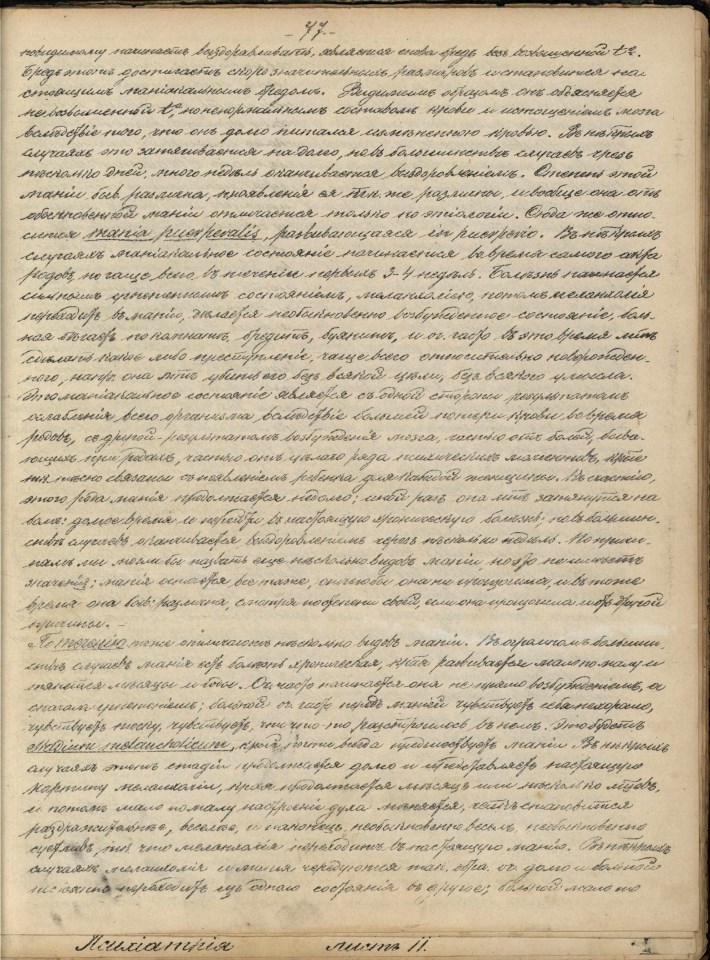 - 77. -
повидимому начинаетъ выздоравливать, является снова бредъ безъ возвышенной t°.
Бредъ этотъ достигаетъ скоро значительныхъ размѣровъ и становится на
стоящимъ маніакальнымъ бредомъ. Видимымъ образомъ онъ объясняется
не возвышенной t°, но ненормальнымъ составомъ крови и истощеніемъ мозга
вслѣдствіе того, что онъ долго питался измѣненною кровью. Въ нѣкотрыхъ
случаяхъ это затягивается на долго, но въ большинствѣ случаевъ чрезъ
нѣсколько дней, много недѣль оканчивается выздоровленіемъ. Степень этой
маніи быв. различна, проявленія ея тѣмъ же различны, и вообще она отъ
обыкновенной маніи отличается только по этіологіи. Сюда же отно
сится mania puerperalis, развивающаяся in puerperio. Въ нѣкотрыхъ
случаяхъ маніакальное состояніе начинается во время самого акта
родовъ, но чаще всего въ теченіи первыхъ 3-4 недѣль. Болѣзнь начинается
сильнымъ угнетеннымъ состояніемъ, меланхоліею, потомъ меланхолія
переходитъ въ манію, дѣлается необыкновенно возбужденное состояніе, боль
ная бѣгаетъ по комнатѣ, бредитъ, буянитъ, и оч. часто въ это время м.тъ
сдѣлать какое либо преступленіе, чаще всего относительно новорожден-
наго, напр. она м.тъ убить его безъ всякой цѣли, безъ всякаго умысла.
Это маніакальное состояніе является съ одной стороны результатомъ
ослабленія всего организма вслѣдствіе большой потери крови во время
родовъ, съ другой - результатомъ возбужденія мозга, частью отъ болей, быва-
ющихъ при родахъ, частью отъ цѣлаго ряда психическихъ моментовъ, котор
ые тѣсно связаны съ появленіемъ ребенка для каждой женщины. Въ счастію,
этого рода манія продолжается недолго; иной разъ она м.тъ затянуться на
болѣе долгое время и перейти въ настоящую хроническую болѣзнь; но въ большин
ствѣ случаевъ оканчивается выздоровленіемъ черезъ нѣсколько недѣль. По причи
намъ мы могли бы назвать еще нѣсколько видовъ маніи, но это не имѣетъ
значенія; манія остается все таже, отчего бы она ни произошла, и въ тоже
время она быв. различна, смотря по степени своей, если она произошла и отъ другой
причины. -
По теченію тоже отличаютъ нѣсколько видовъ маніи. Въ огромномъ большин
ствѣ случаевъ манія есть болѣзнь хроническая, котрая развивается мало по малу и
тянется мѣсяцы и годы. Оч. часто начинается она не прямо возбужденіемъ, а
сначала угнетеніемъ; больной оч. часто предъ маніей чувствуетъ себя нехорошо,
чувствуетъ тоску, чувствуетъ, что что-то разстроилось въ немъ. Это будетъ
stadium melancholicum, котрый почти всегда предшествуетъ маніи. Въ нѣкотрыхъ
случаяхъ этотъ стадій продолжается долго и представляетъ настоящую
картину меланхоліи, котрая продолжается мѣсяцъ или нѣсколько мѣсцевъ,
и потомъ мало по малу настроеніе духа мѣняется, челов. становится
раздражительнѣе, веселѣе, и наконецъ, необыкновенно веселъ, необыкновенно
суетливъ, такъ что меланхолія переходитъ въ настоящую манію. Въ нѣкотрыхъ
случаяхъ меланхолія и манія чередуются так. обр. оч. долго и больной
постоянно переходитъ изъ одного состоянія въ другое; больной мало по
Психіатрія листъ 11. I